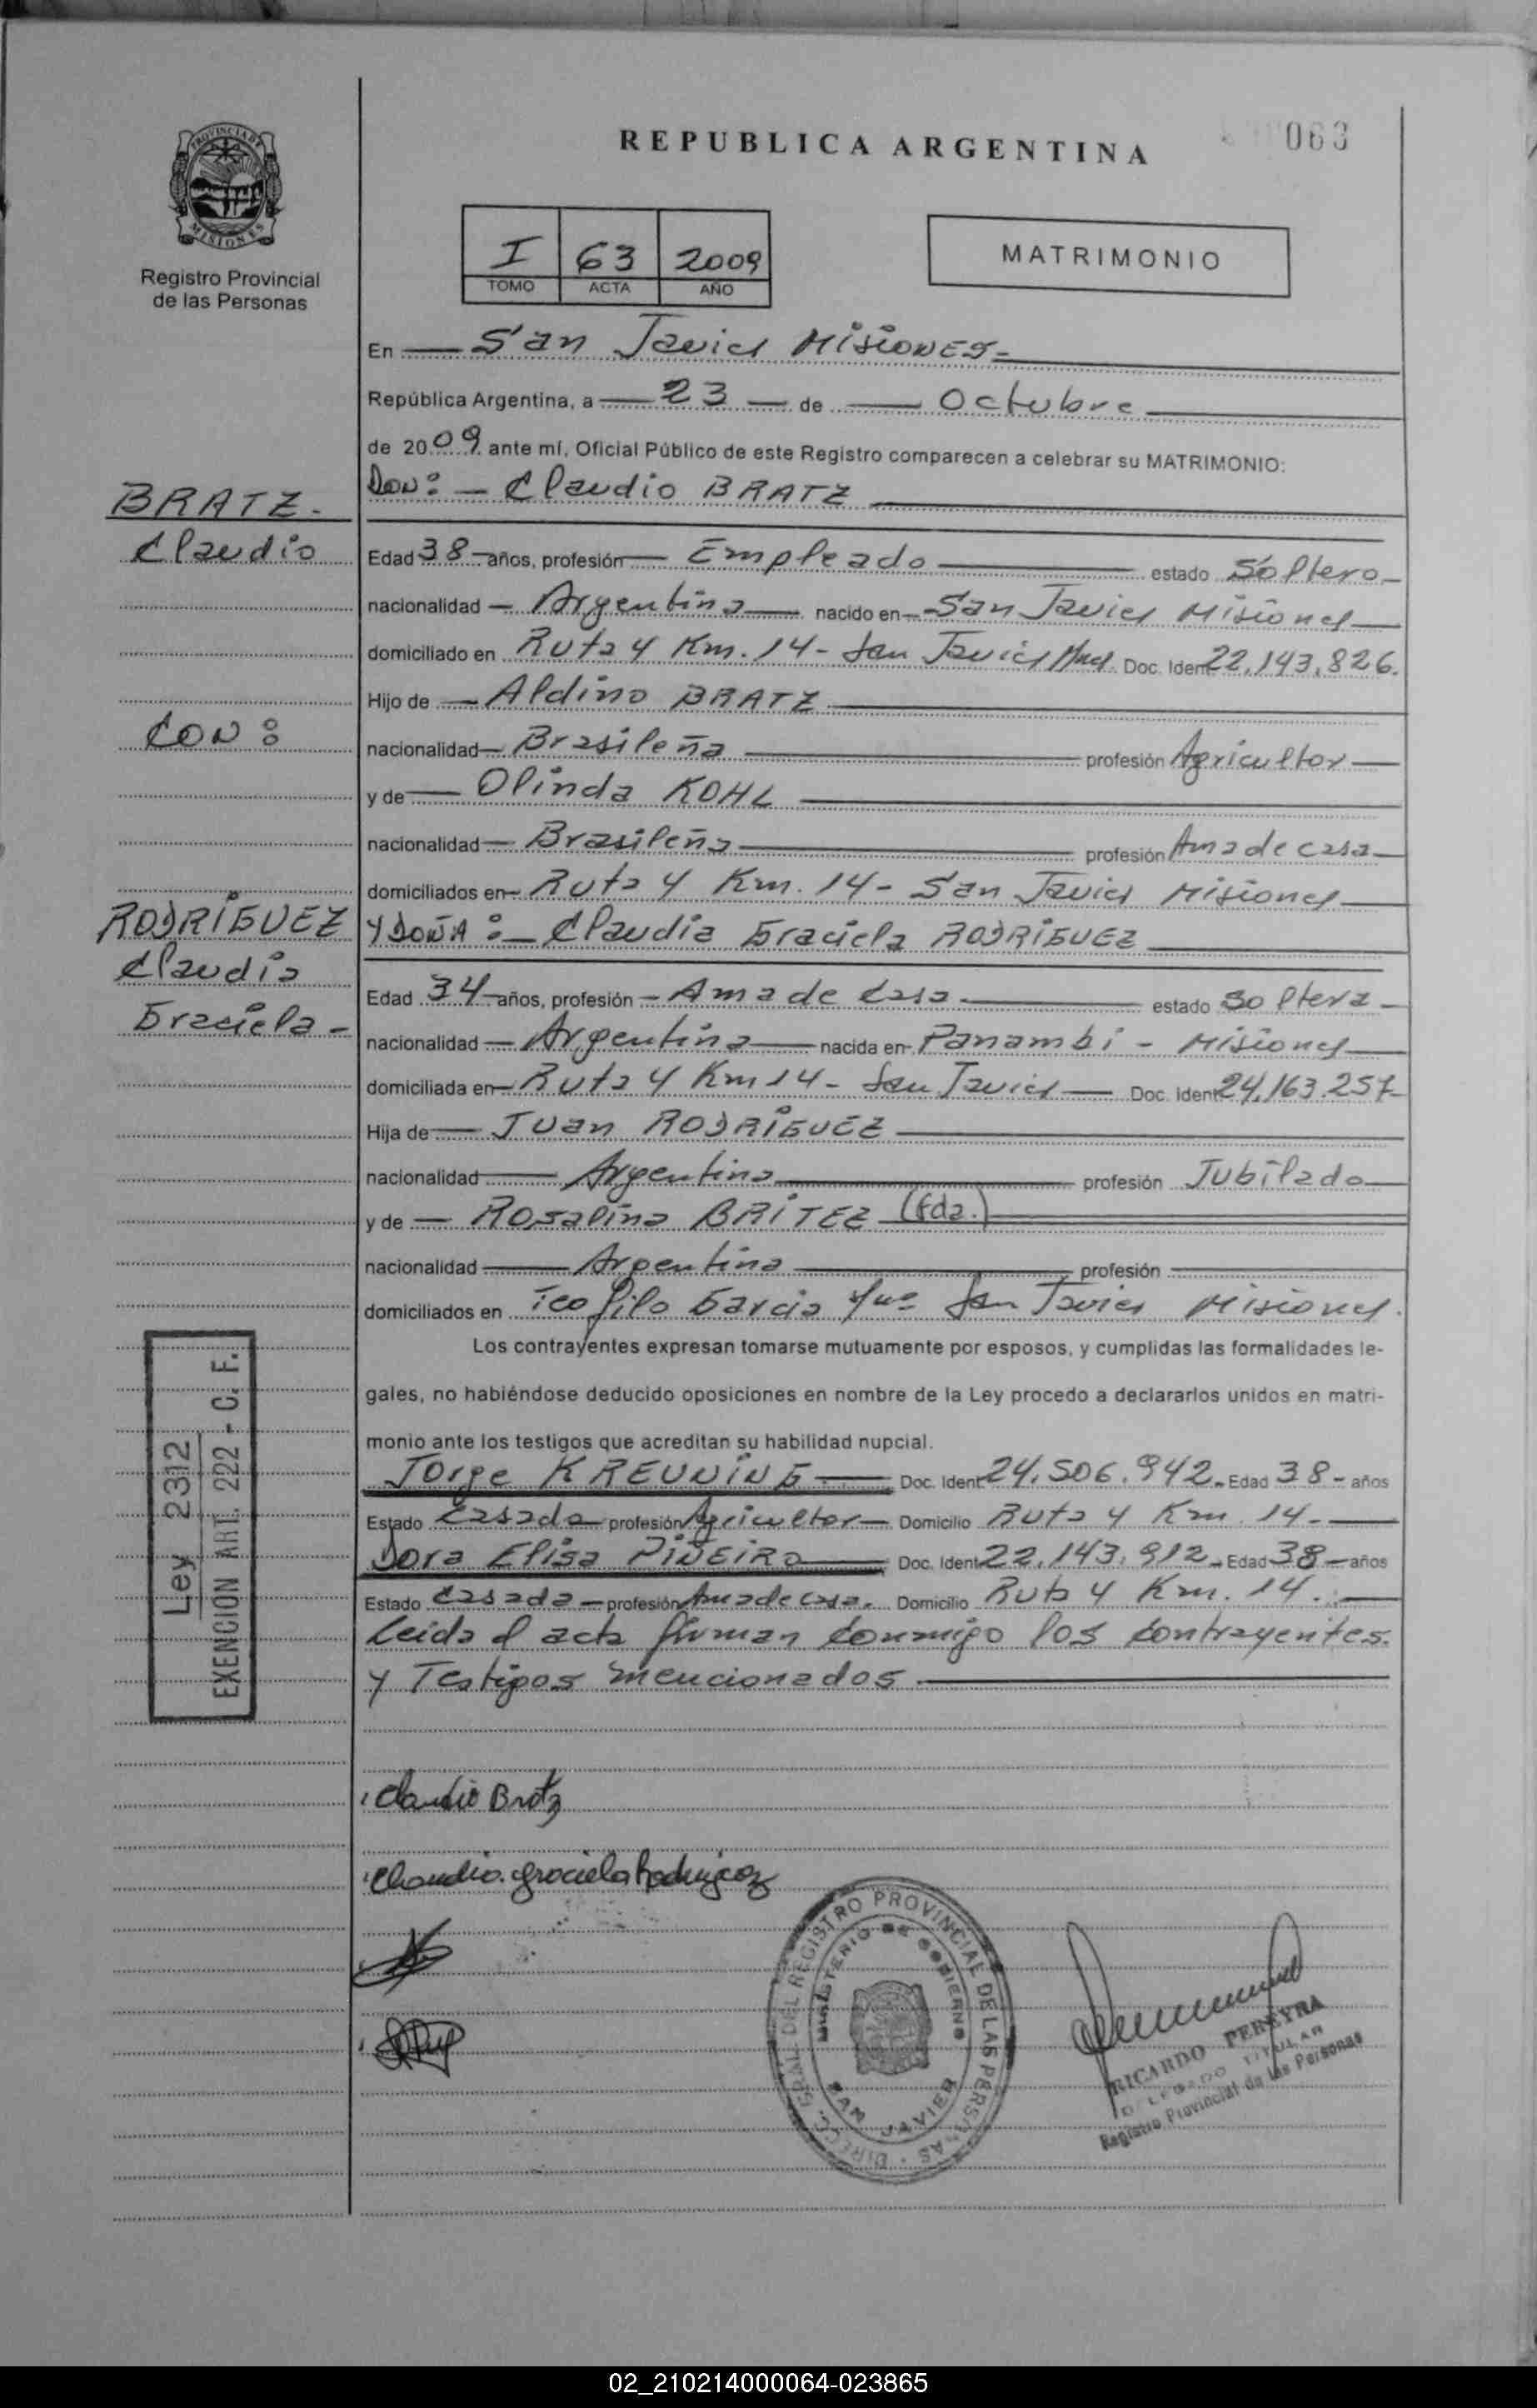 REPUBLICA ARGENTINA
063
PROVINCIA DE
MISIONES
Registro Provincial
de las Personas
I 63 2009
TOMO ACTA AÑO
MATRIMONIO
En San Javier Misiones
República Argentina, a 23 de Octubre
de 2009 ante mí, Oficial Público de este Registro comparecen a celebrar su MATRIMONIO:
Don: Claudio BRATZ
BRATZ
Claudio
Edad 38 años, profesión Empleado estado Soltero
nacionalidad Argentina nacido en San Javier Misiones
domiciliado en Ruta 4 Km. 14 - San Javier Mnes. Doc. Ident 22.143.826.
Hijo de Aldino BRATZ
CON:
nacionalidad Brasileña profesión Agricultor
y de Olinda KOHL
nacionalidad Brasileña profesión Ama de casa
domiciliados en Ruta 4 Km. 14 - San Javier Misiones
RODRÍGUEZ
Claudia
Graciela -
Y DOÑA: Claudia Graciela RODRÍGUEZ
Edad 34 años, profesión - Ama de Casa estado Soltera -
nacionalidad Argentina nacida en Panambí - Misiones
domiciliada en Ruta 4 Km 14 - San Javier Doc. Ident 24.163.257
Hija de Juan RODRÍGUEZ
nacionalidad Argentina profesión Jubilado
y de Rosalina BRÍTEZ (Fda.)
nacionalidad Argentina profesión
domiciliados en Teofilo Garcia San Javier Misiones.
Los contrayentes expresan tomarse mutuamente por esposos, y cumplidas las formalidades le-
gales, no habiéndose deducido oposiciones en nombre de la Ley procedo a declararlos unidos en matri-
monio ante los testigos que acreditan su habilidad nupcial.
Jorge KREUNING Doc. Ident 24.506.942 Edad 38 - años
Estado Casado profesión Agricultor Domicilio Ruta 4 Km. 14.
Dora Elisa PIÑEIRO Doc. Ident 22.143.912 Edad 38 años
Estado Casada profesión Ama de casa. Domicilio Ruta 4 Km. 14.
Leida el acta firman conmigo los contrayentes.
y Testigos mencionados
Ley 2312
EXENCION ART. 222 - C. F.
Claudio Bratz
Claudia Graciela Rodriguez
DIRECC. GRAL. DEL REGISTRO PROVINCIAL DE LAS PERSONAS
MINISTERIO DE GOBIERNO
SAN JAVIER
RICARDO PEREYRA
DELEGADO TITULAR
Registro Provincial de las Personas
02_210214000064-023865